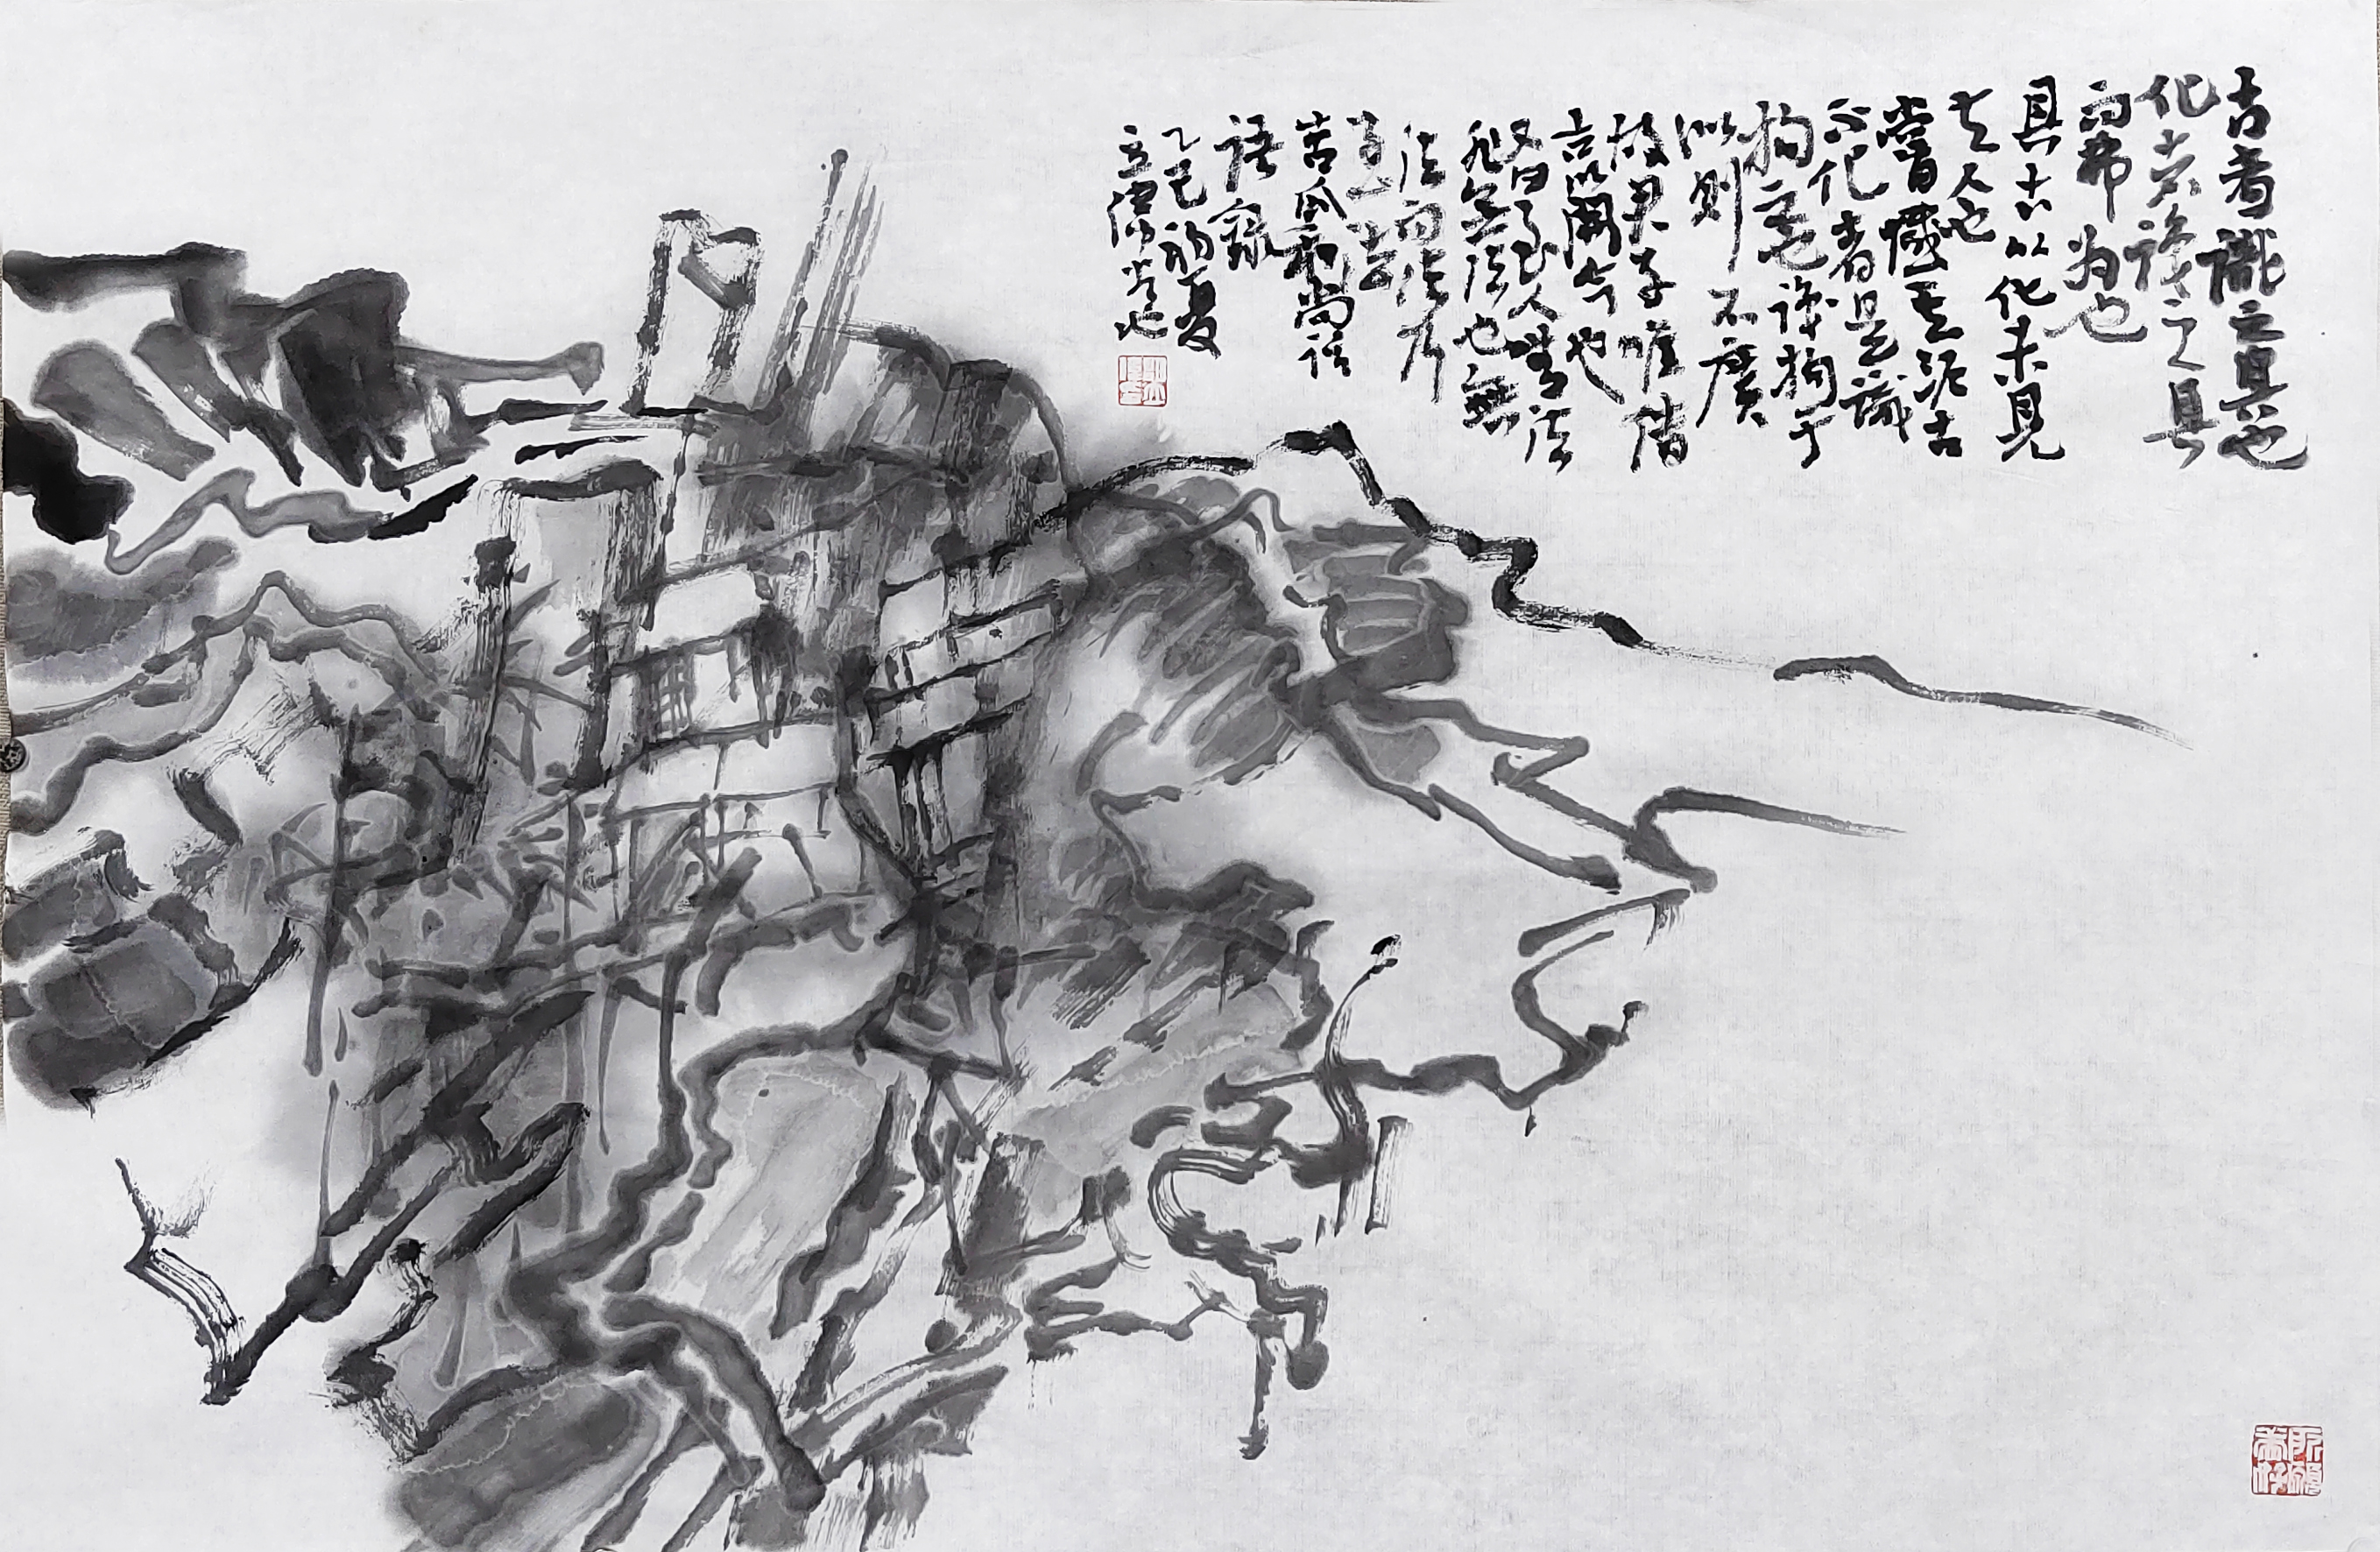 古者識之具也
化者識之具
而弗为也
具古以化未見
夫人也
嘗憾其泥古
不化者是識
拘之也識拘于
似則不廣
故君子唯借
古以開今也
又曰至人無法
非無法也無
法而法乃
至法
苦瓜和尚
語錄
乙巳初夏
立偉